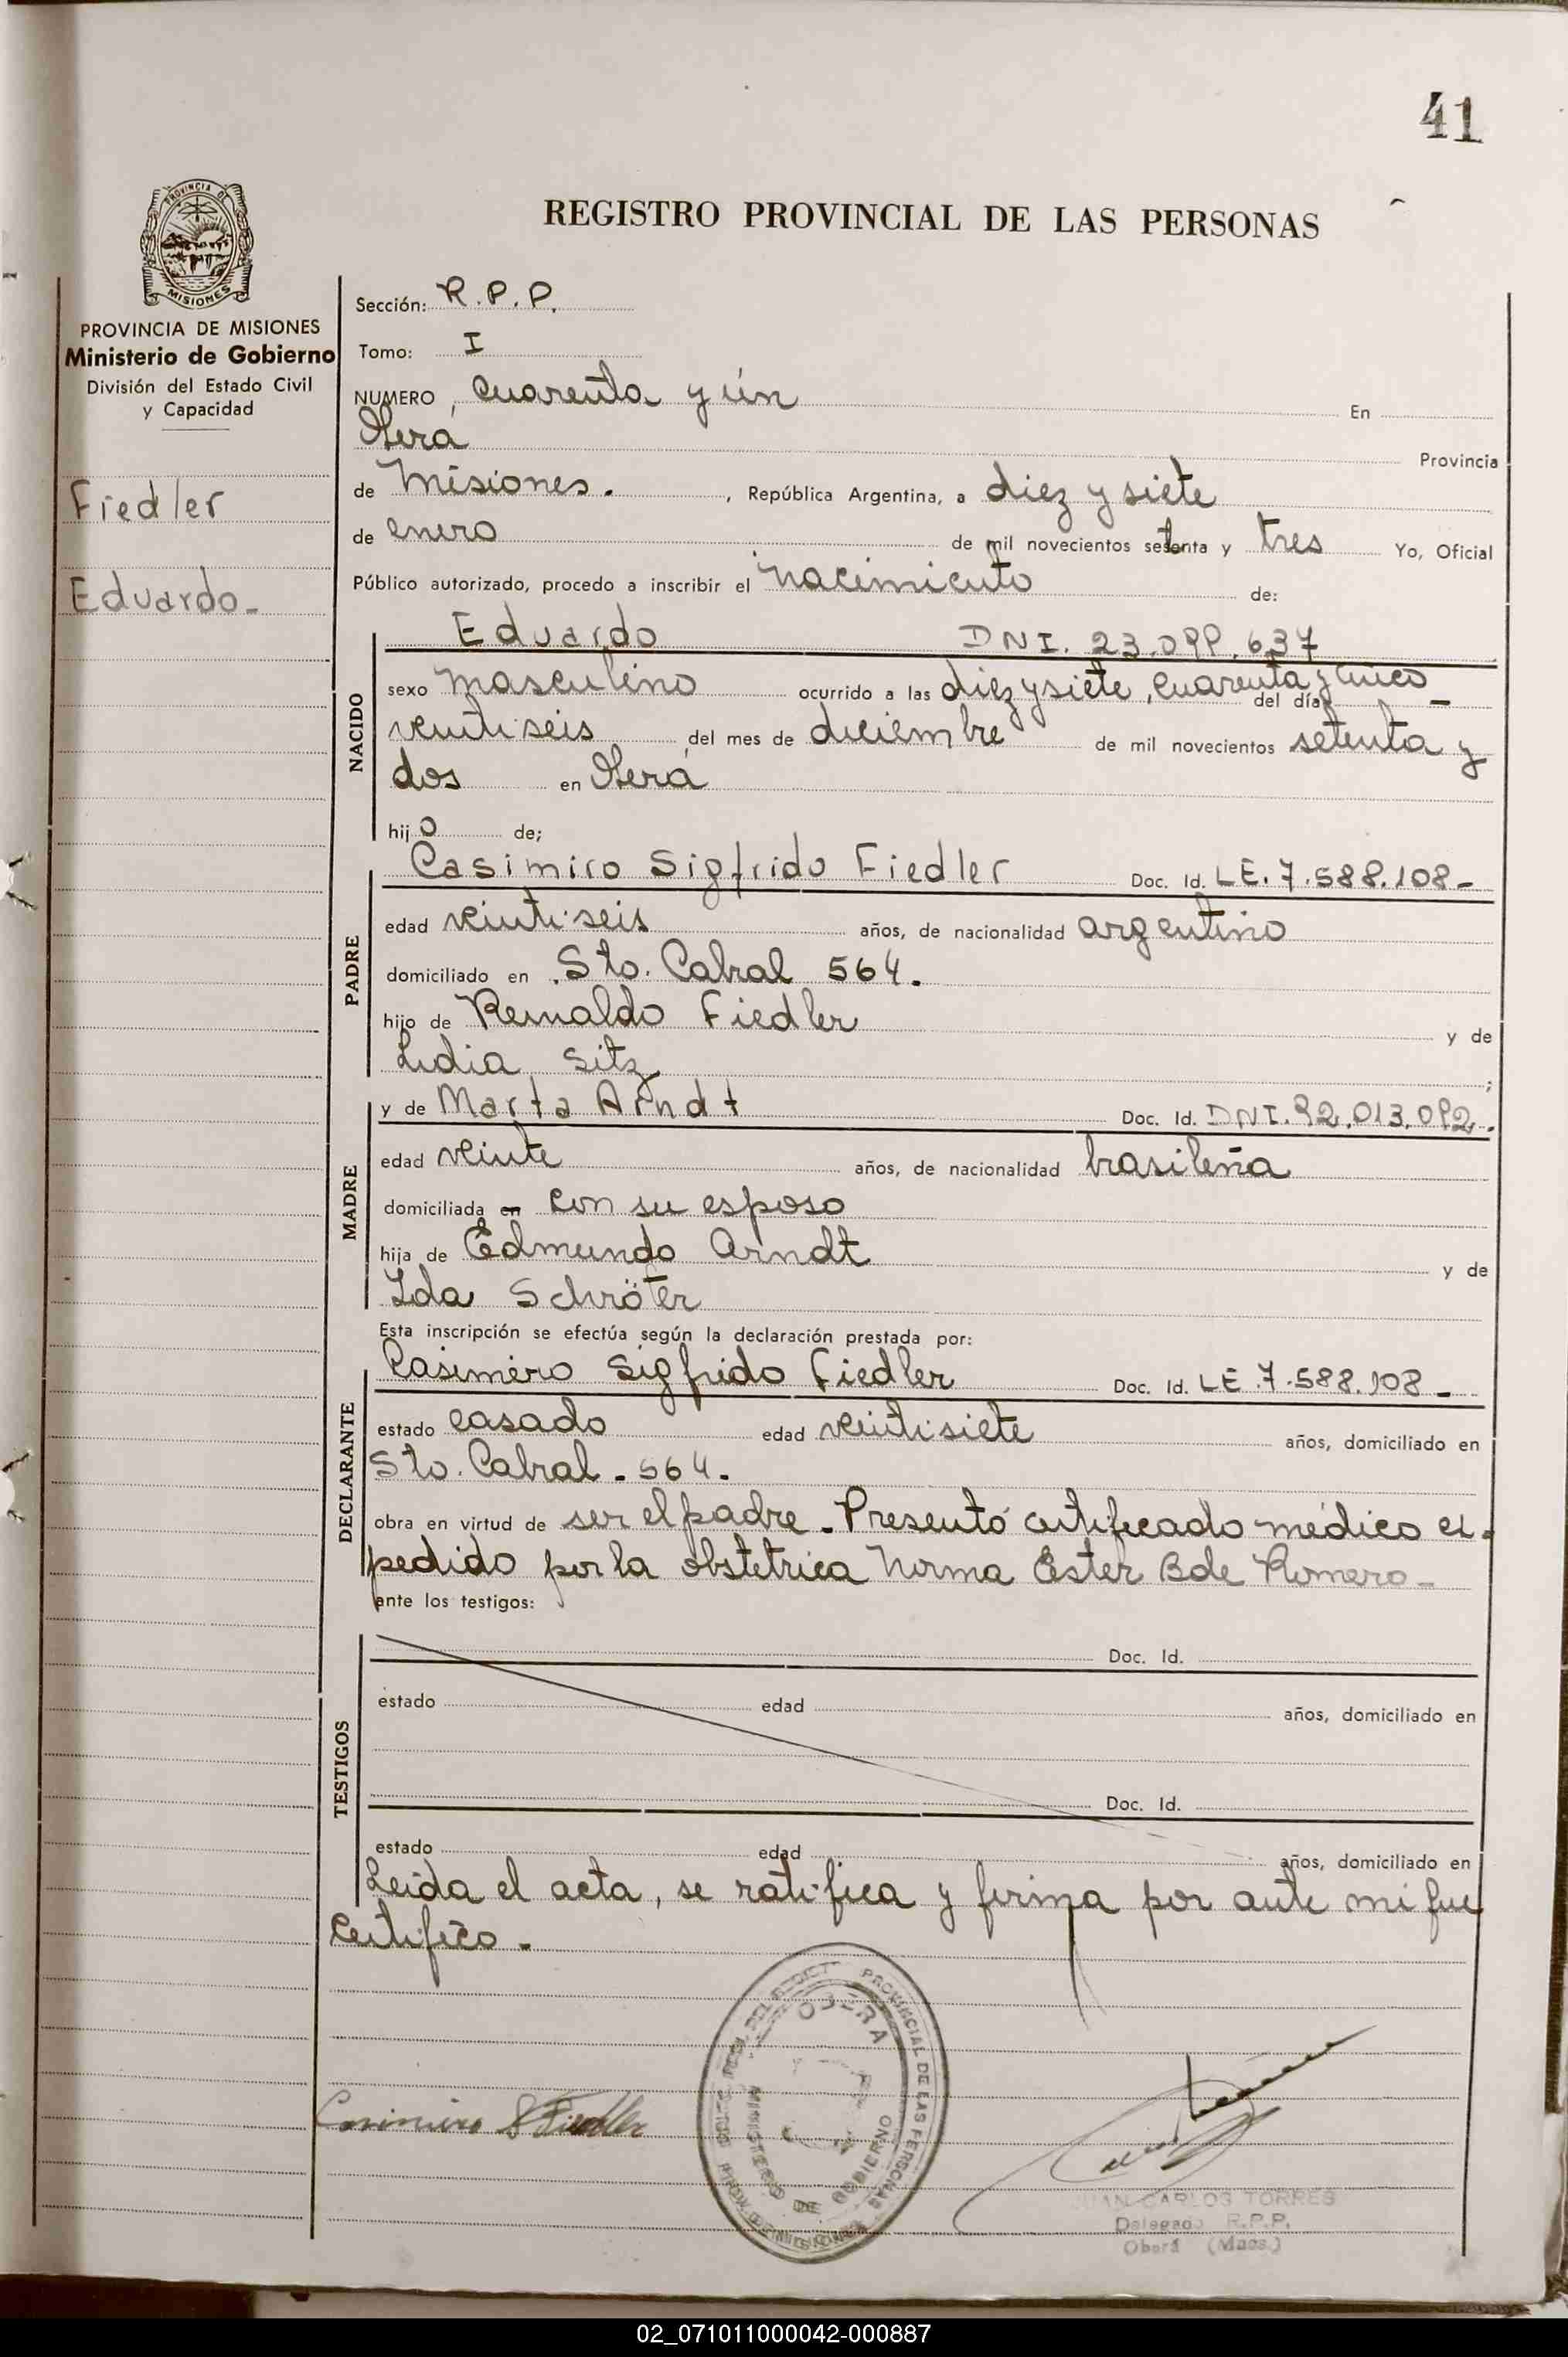 41
REGISTRO PROVINCIAL DE LAS PERSONAS
PROVINCIA DE
MISIONES
PROVINCIA DE MISIONES
Ministerio de Gobierno
División del Estado Civil
y Capacidad
Fiedler
Eduardo-
Sección: R.P.P.
Tomo: I
NUMERO, cuarenta y ún En
Oberá Provincia
de Misiones. , República Argentina, a diez y siete
de enero de mil novecientos setenta y tres Yo, Oficial
Público autorizado, procedo a inscribir el nacimiento de:
NACIDO
Eduardo DNI. 23.099.637
sexo masculino ocurrido a las diez y siete, cuarenta y cinco del día
veinti seis del mes de diciembre de mil novecientos setenta y
dos en Oberá
hijo de;
PADRE
Casimiro Sigfrido Fiedler Doc. Id. LE. 7.588.108-
edad veinti seis años, de nacionalidad argentino
domiciliado en Sto. Cabral 564.
hijo de Reinaldo Fiedler y de
Lidia Sitz ;
MADRE
y de Marta Arndt Doc. Id. DNI. 92.013.092.
edad veinte años, de nacionalidad brasileña
domiciliada en con su esposo
hija de Edmundo Arndt y de
Ida Schröter
Esta inscripción se efectúa según la declaración prestada por:
DECLARANTE
Casimiro Sigfrido Fiedler Doc. Id. LE. 7.588.108-
estado casado edad veinti siete años, domiciliado en
Sto. Cabral - 564.
obra en virtud de ser el padre. Presentó certificado médico ex-
pedido por la obstetrica Norma Ester B de Romero-
ante los testigos:
TESTIGOS
Doc. Id.
estado edad años, domiciliado en
Doc. Id.
estado edad años, domiciliado en
Leida el acta, se ratifica y firma por ante mi que
certifico.
PROVINCIAL DE LAS PERSONAS
OBERA
MINISTERIO DE GOBIERNO
Casimiro S Fiedler
JUAN CARLOS TORRES
Delegado R.P.P.
Oberá (Mnes.)
02_071011000042-000887